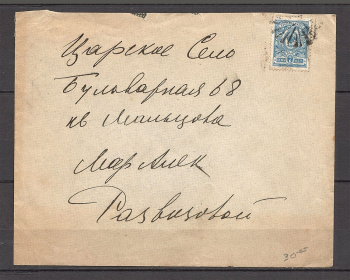 Царское Село
Бульварная 68
кв Мальцова
Map Алек
Развозовой
30-